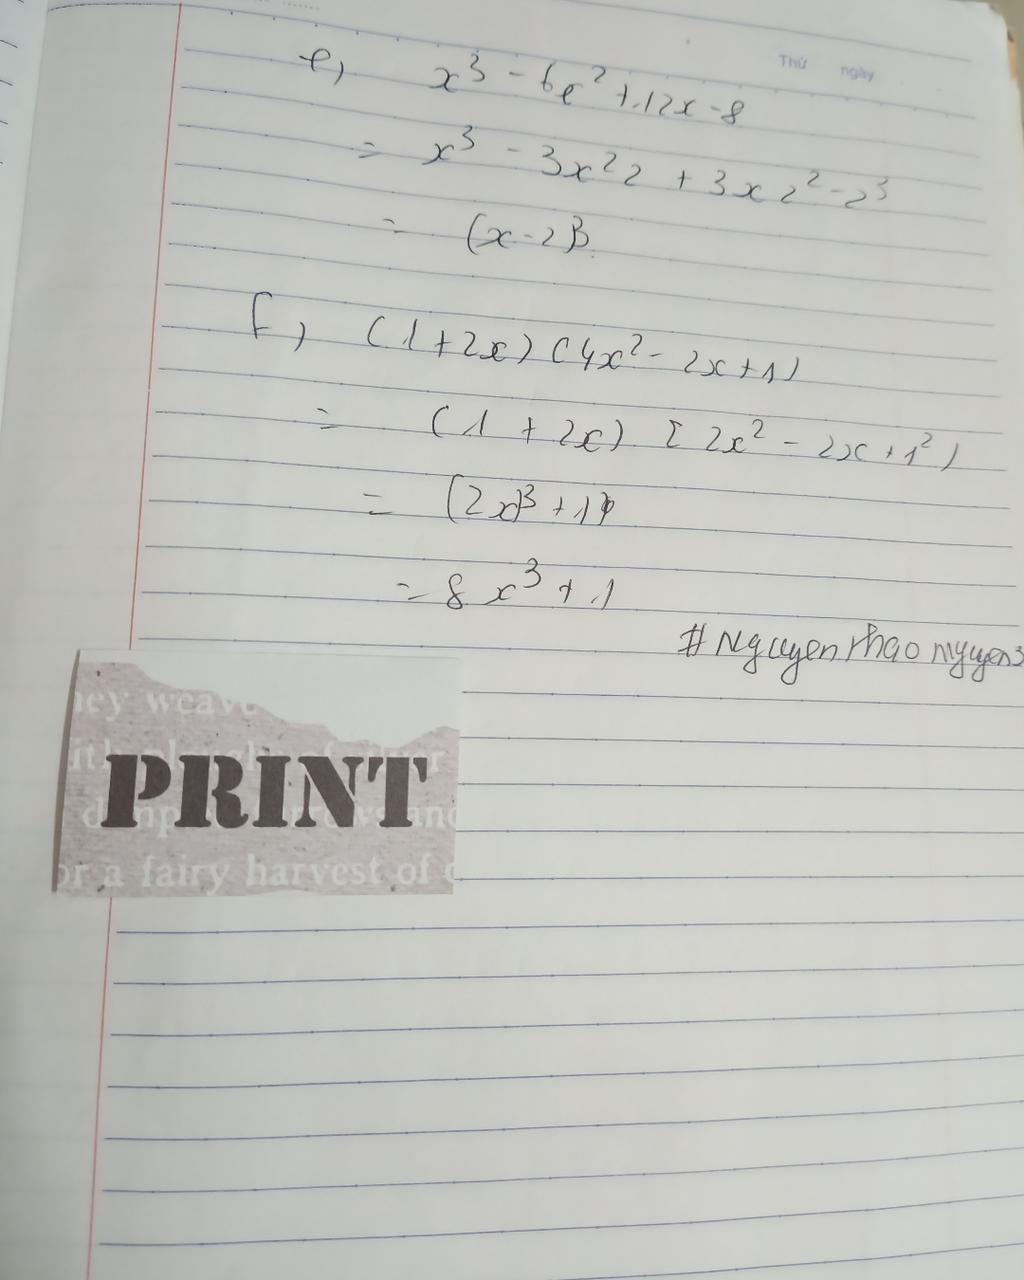 Thứ ngày
e, x³ - 6x² + 12x - 8
= x³ - 3x²2 + 3x2² - 2³
= (x-2)³
f, (1+2x)(4x² - 2x + 1)
= (1 + 2x) [2x² - 2x + 1²)
= (2x)³ + 1³
= 8x³ + 1
#Nguyenthaonguyen3
ey weav
PRINT
or a fairy harvest of